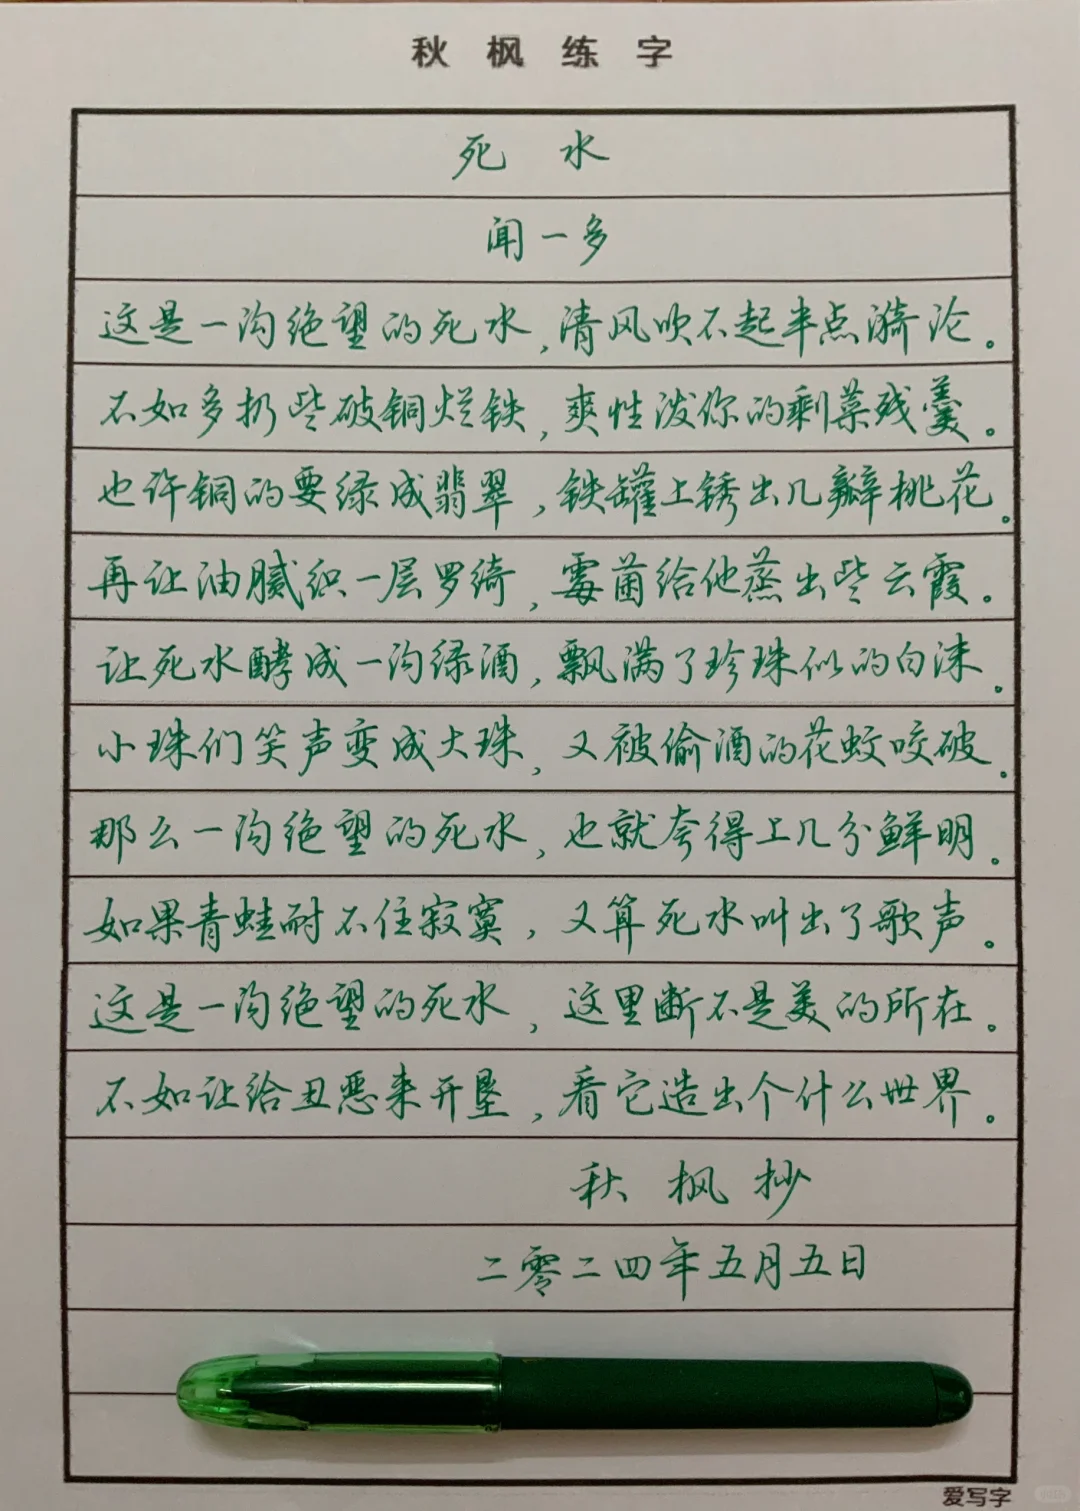 秋枫练字
死水
闻一多
这是一沟绝望的死水,清风吹不起半点漪沦。
不如多扔些破铜烂铁,爽性泼你的剩菜残羹。
也许铜的要绿成翡翠,铁罐上锈出几瓣桃花。
再让油腻织一层罗绮,霉菌给他蒸出些云霞。
让死水酵成一沟绿酒,飘满了珍珠似的白沫。
小珠们笑声变成大珠,又被偷酒的花蚊咬破。
那么一沟绝望的死水,也就夸得上几分鲜明。
如果青蛙耐不住寂寞,又算死水叫出了歌声。
这是一沟绝望的死水,这里断不是美的所在。
不如让给丑恶来开垦,看它造出个什么世界。
秋枫抄
二零二四年五月五日
爱写字